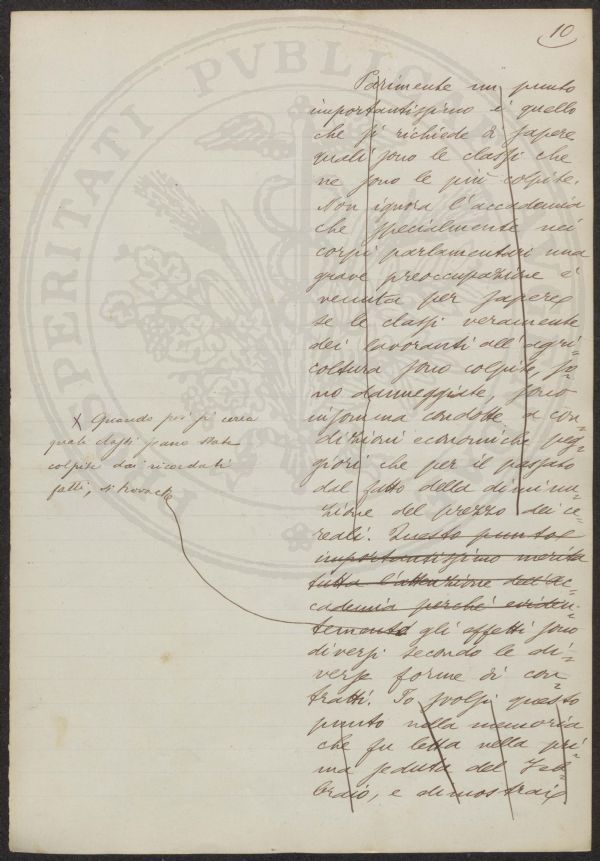 10
Parimente un punto
importantissimo è quello
che si richiede di sapere
quali sono le classi che
ne sono le più colpite.
Non ignora l'accademia
che specialmente nei
corpi parlamentari una
grave preoccupazione è
venuta per sapere
se le classi veramente
dei lavoranti all'agri-
coltura sono colpite, so-
no danneggiate, sono
insomma condotte a con-
dizioni economiche peg-
giori che per il passato
dal fatto della diminu-
zione del prezzo dei ce-
reali. Questo punto è
importantissimo merita
tutta l'attenzione dell'Ac-
cademia perché eviden-
temente gli effetti sono
diversi secondo le di-
verse forme di con-
tratti. Io svolsi questo
punto nella memoria
che fu letta nella pri-
ma seduta del Feb-
braio, e dimostrai
X Quando poi si cerca
quali classi siano state
colpite dai ricordati
fatti, si trova che
PROSPERITATI PVBLICAE